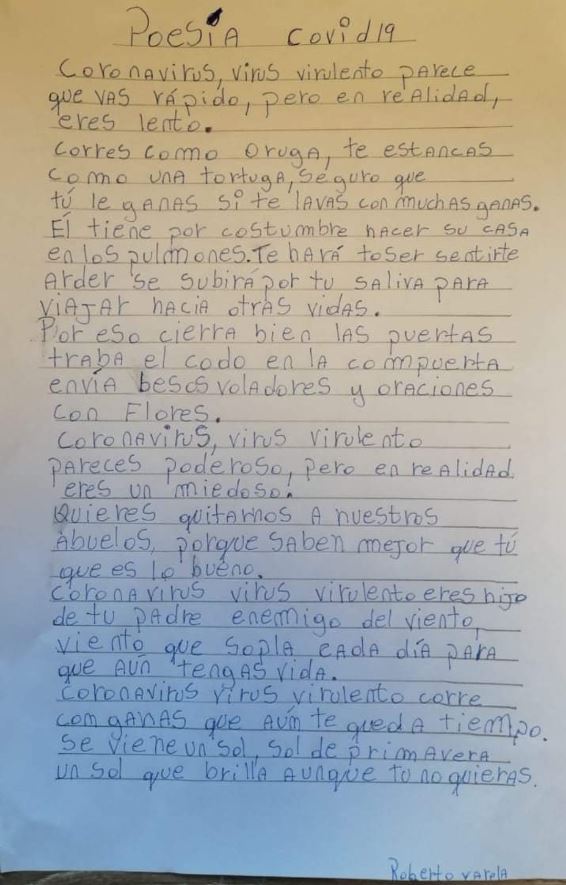 Poesía covid19
Coronavirus, virus virulento parece
que vas rápido, pero en realidad,
eres lento.
corres como oruga, te estancas
como una tortuga, seguro que
tú le ganas si te lavas con muchas ganas.
Él tiene por costumbre hacer su casa
en los pulmones. Te hará toser sentirte
arder se subirá por tu saliva para
viajar hacia otras vidas.
Por eso cierra bien las puertas
traba el codo en la compuerta
envía besos voladores y oraciones
con Flores.
coronavirus, virus virulento
pareces poderoso, pero en realidad
eres un miedoso.
Quieres quitarnos a nuestros
abuelos, porque saben mejor que tú
que es lo bueno.
coronavirus virus virulento eres hijo
de tu padre enemigo del viento,
viento que sopla cada día para
que aún tengas vida.
coronavirus virus virulento corre
com ganas que aúm te queda tiempo.
se viene un sol, sol de primavera
un sol que brilla aunque tu no quieras.
Roberto varela